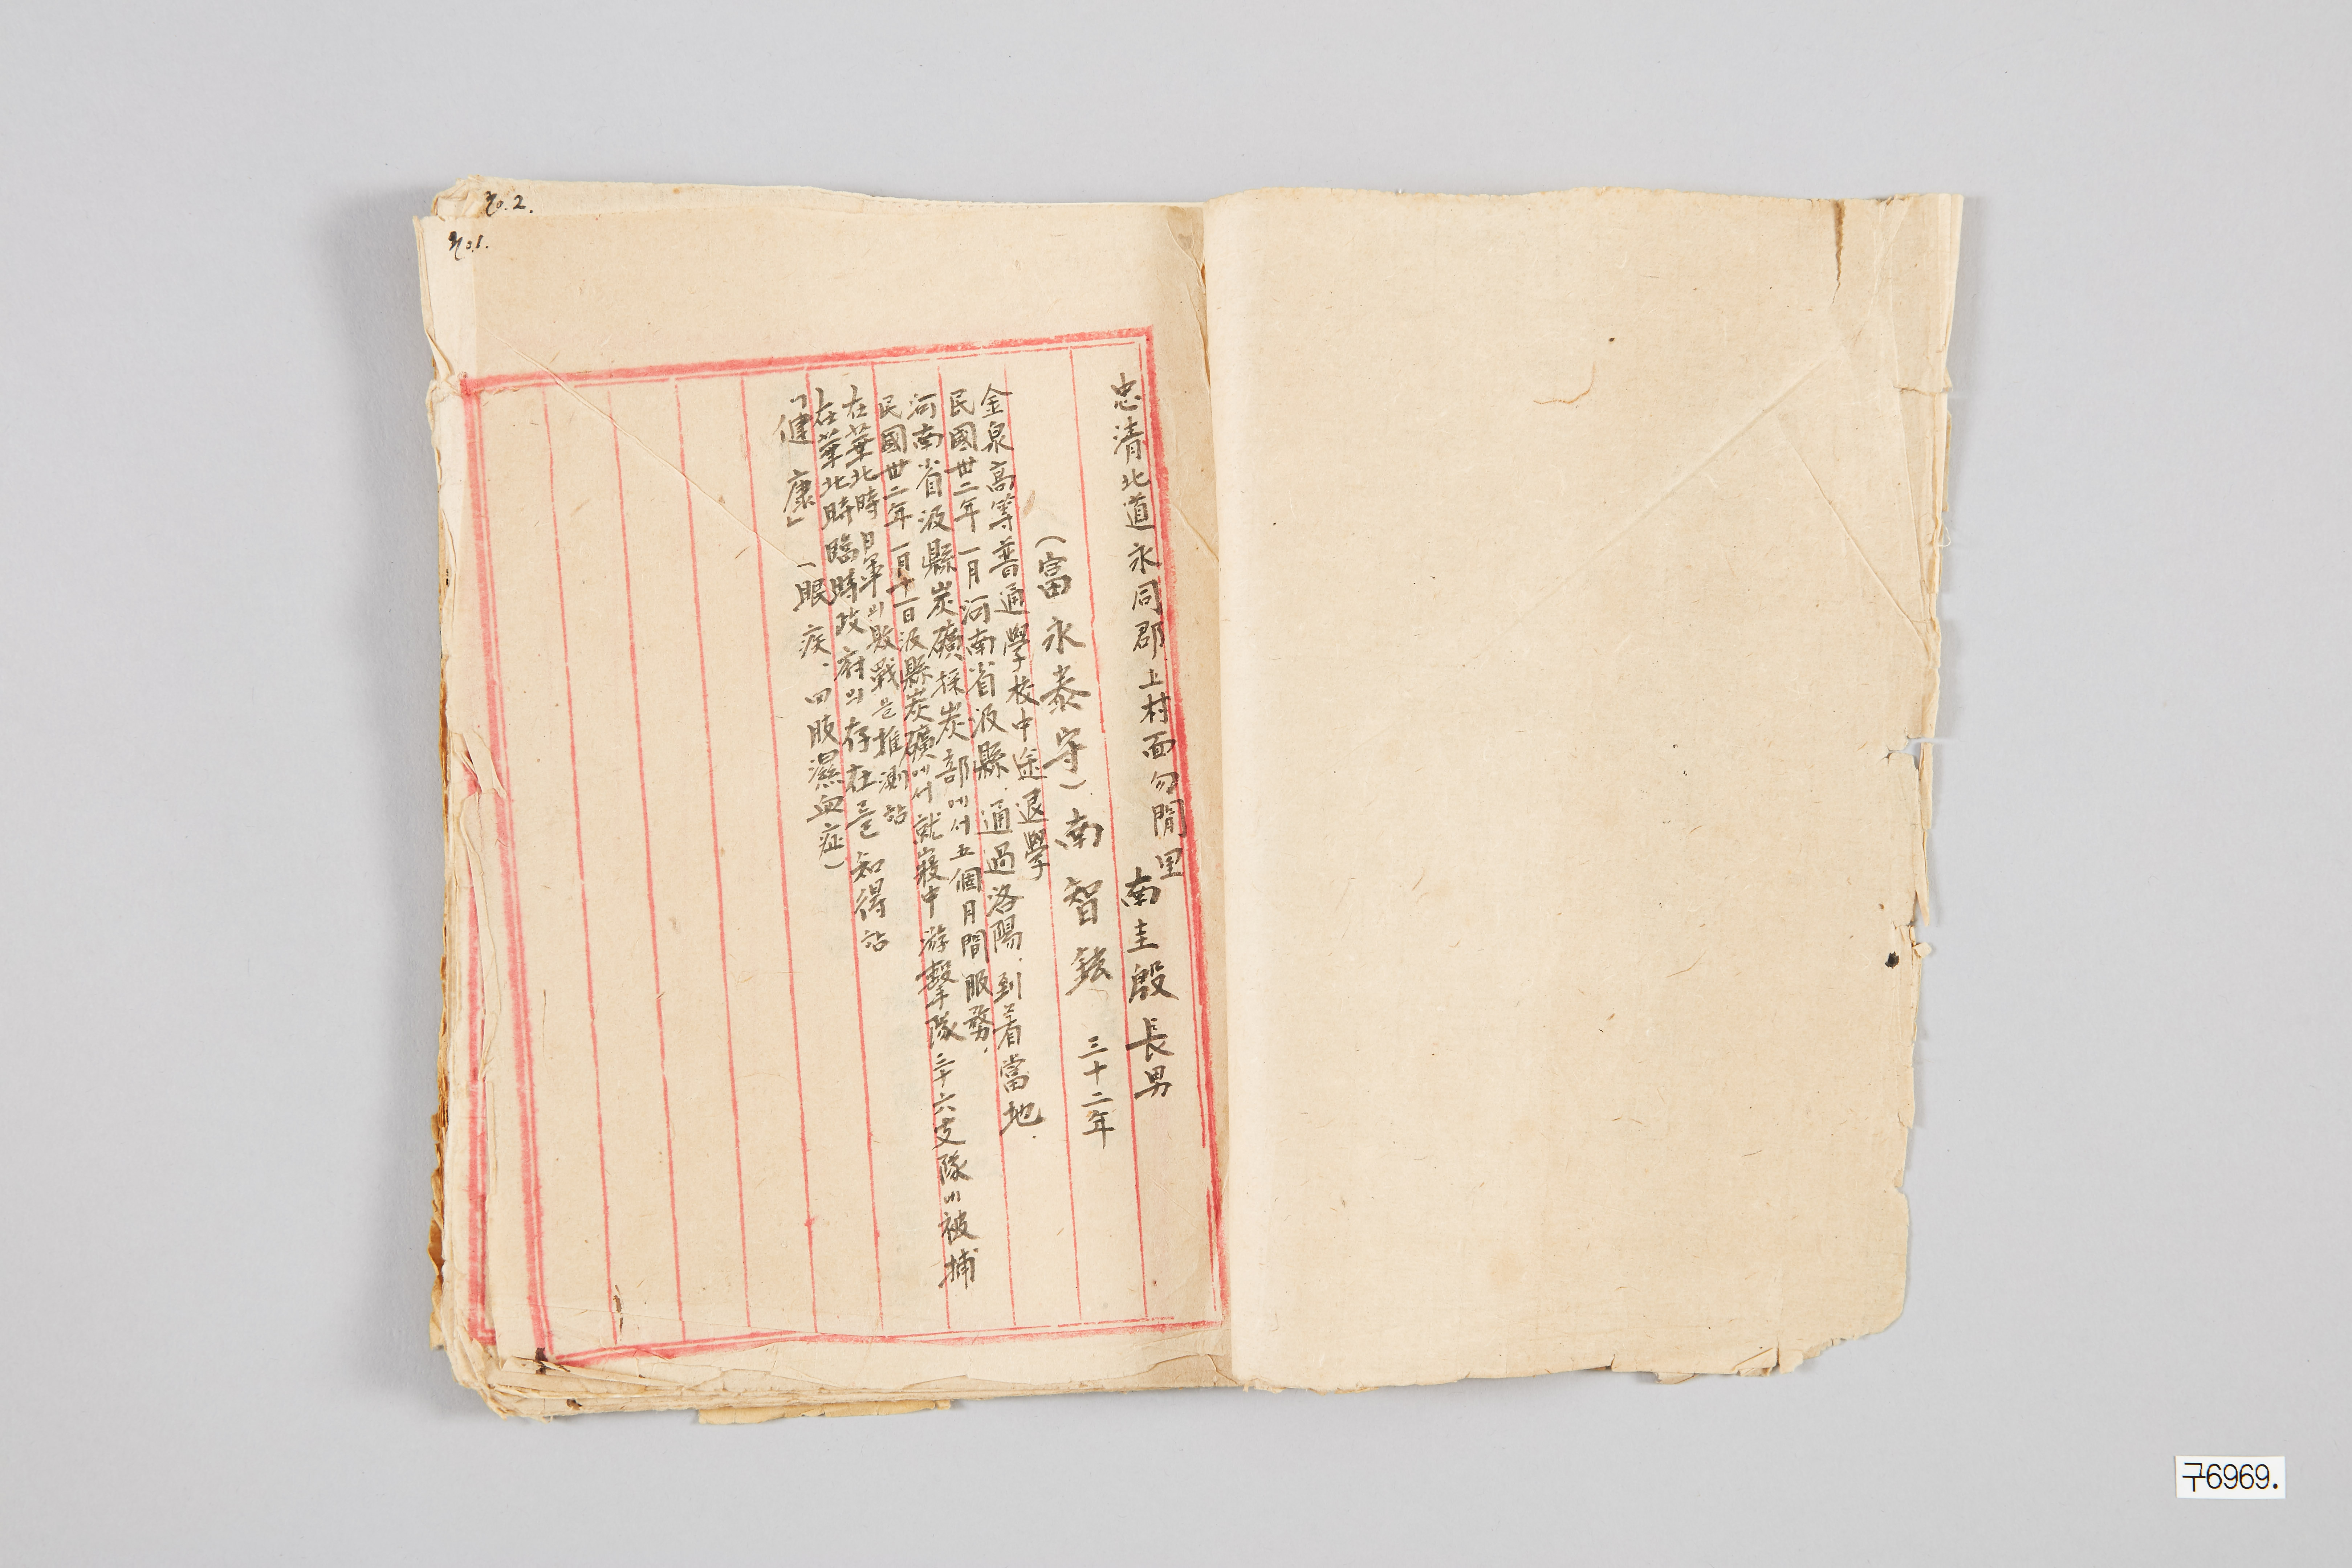 No.2.
No.1.
忠清北道永同郡上村面勿閒里
南圭殷 長男
(富永泰守) 南智鉉 三十二年
金泉高等普通學校中途退學
民國卅二年一月河南省汲縣. 通過洛陽. 到着當地.
河南省汲縣炭礦採炭部에서五個月間服務.
民國卅二年一月十一日汲縣炭礦에서就寢中游擊隊三十六支隊에被捕
在華北時 日軍의敗戰은推測
在華北時 臨時政府의存在를 知得
「健康」 (眼疾、四肢濕血症)
구6969.